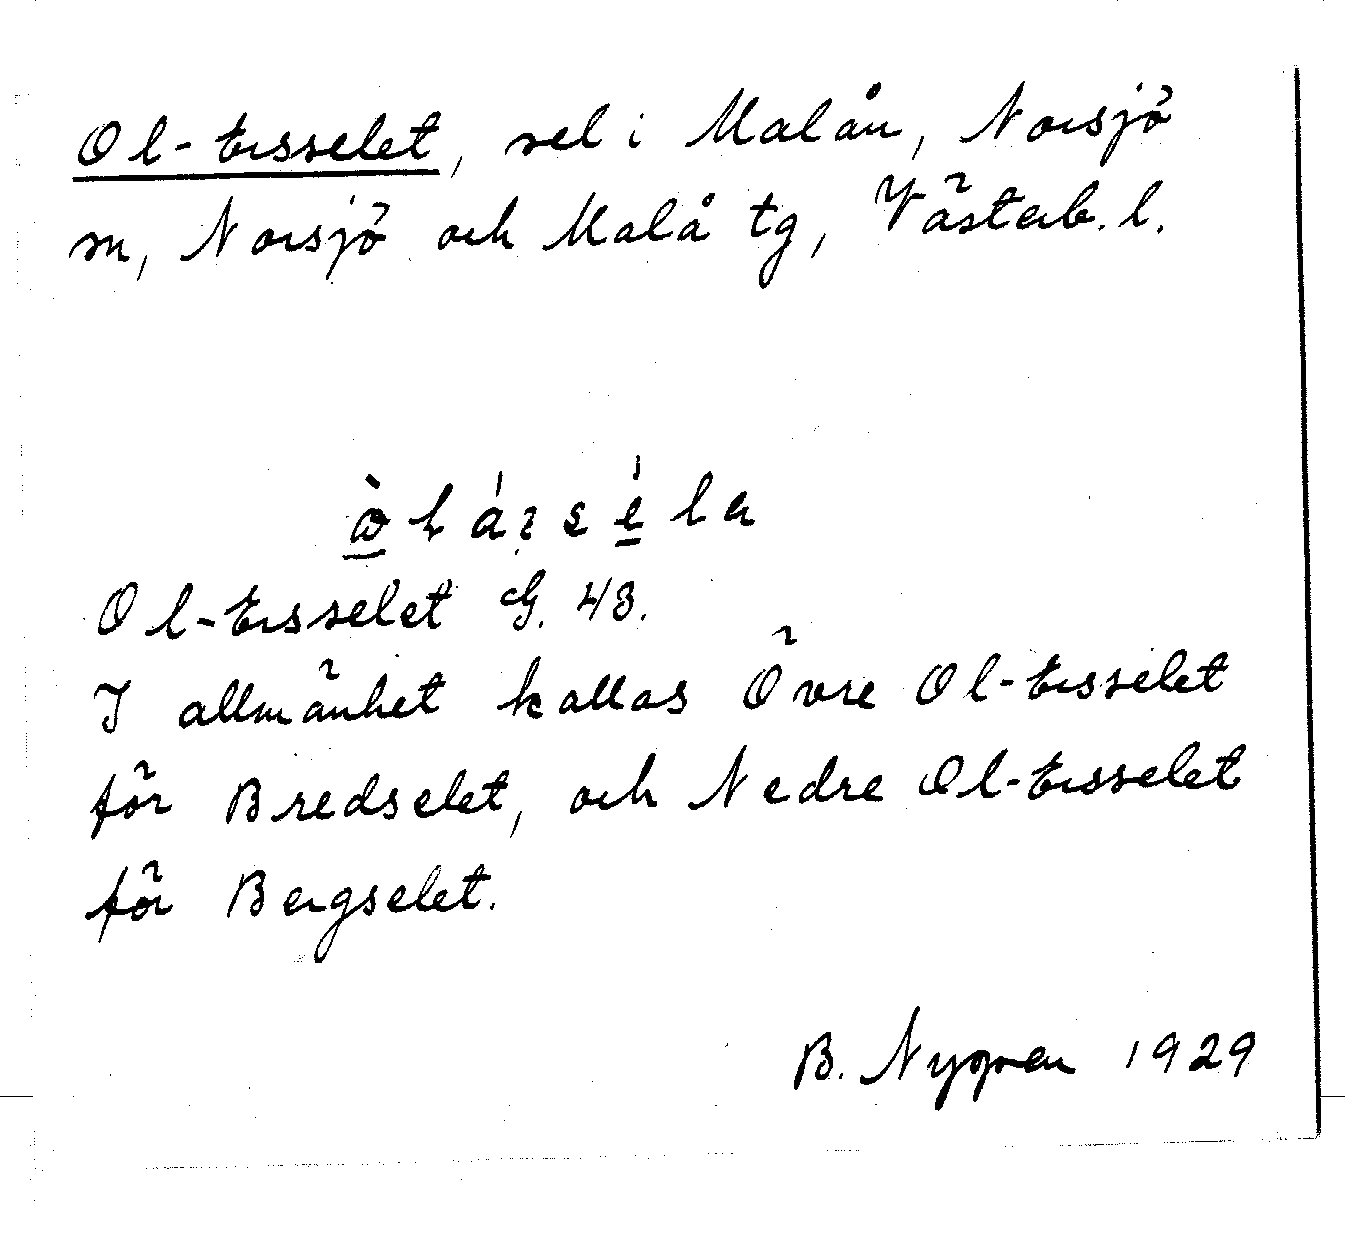 Ol-Ersselet, sel i Malån, Norsjö
sn, Norsjö och Malå tg, Västerb. l.
Ol-Ersselet G. 43.
I allmänhet kallas Övre Ol-Ersselet
för Bredselet, och Nedre Ol-Ersselet
för Bergselet.
B. Nygren 1929